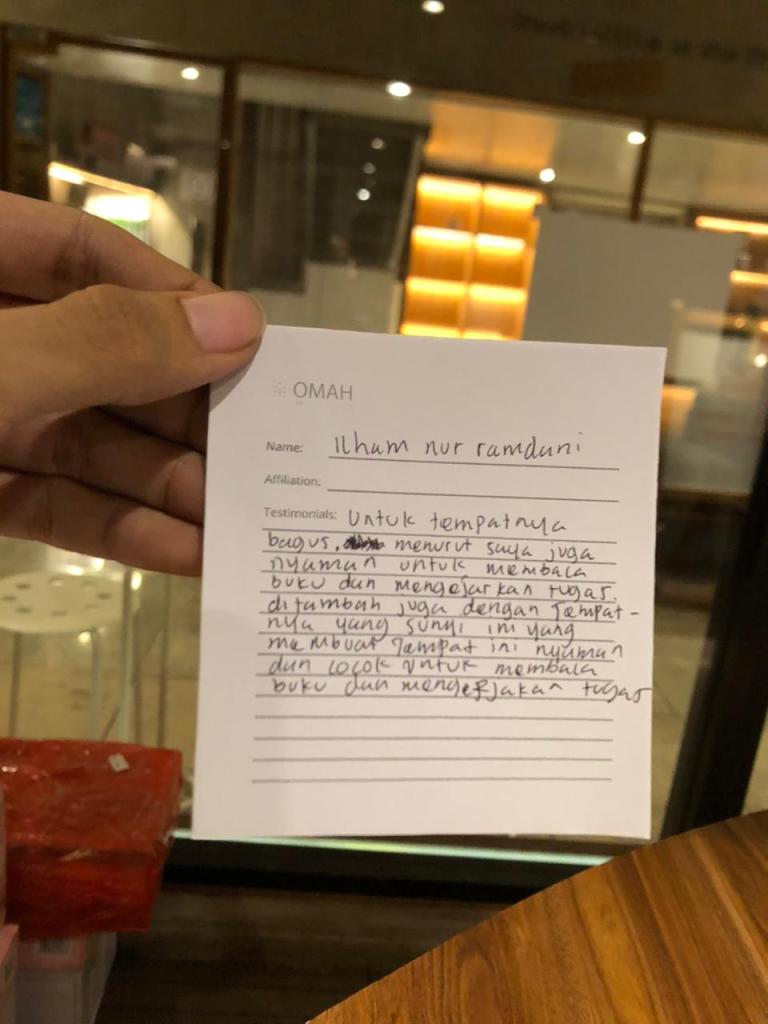 OMAH
Name: Ilham nur ramdani
Affiliation:
Testimonials: Untuk tempatnya
bagus, menurut saya juga
nyaman untuk membaca
buku dan mengejarkan tugas.
ditambah juga dengan tempat-
nya yang sunyi ini yang
membuat tempat ini nyaman
dan cocok untuk membaca
buku dan mengerjakan tugas